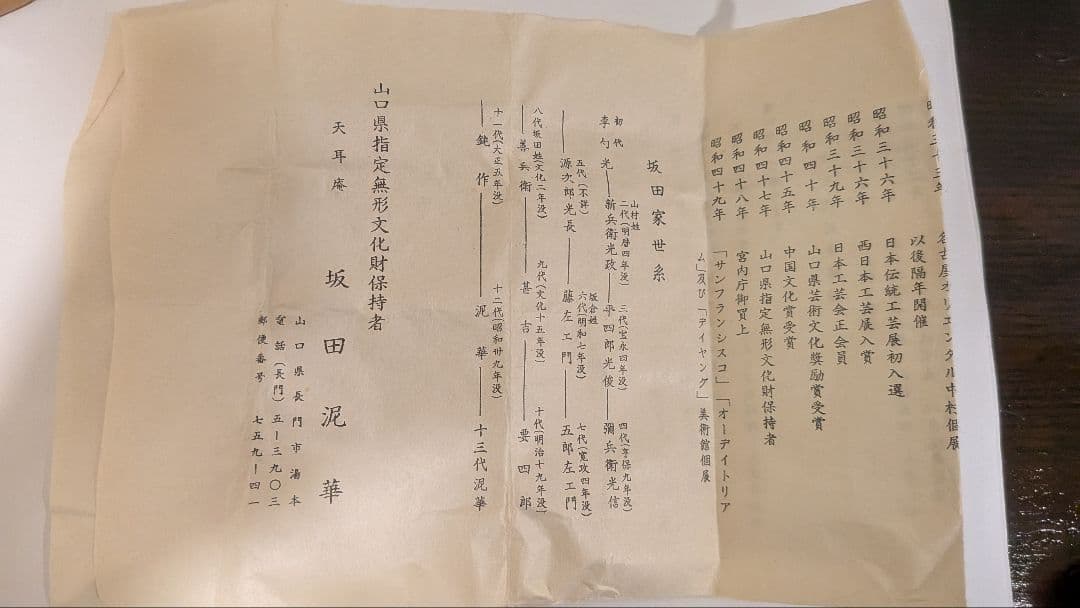 昭和三十三年 名古屋オリエンタル中村個展
以後隔年開催
昭和三十六年 日本伝統工芸展初入選
昭和三十六年 西日本工芸展入賞
昭和三十九年 日本工芸会正会員
昭和四十年 山口県芸術文化奨励賞受賞
昭和四十五年 中国文化賞受賞
昭和四十七年 山口県指定無形文化財保持者
昭和四十八年 宮内庁御買上
昭和四十九年 「サンフランシスコ」「オーデイトリア
ム」及び「デイヤング」美術館個展
坂田家世系
初代 山村姓 二代(明暦四年没) 三代(宝永四年没) 四代(享保九年没)
李勺光―新兵衛光政―平四郎光俊―彌兵衛光信
五代(不詳) 坂倉姓 六代(明和七年没) 七代(寛攻四年没)
―源次郎光長―藤左エ門―五郎左エ門
八代坂田姓(文化二年没) 九代(文化十五年没) 十代(明治十九年没)
―善兵衛―甚吉―要四郎
十一代(大正五年没) 十二代(昭和卅九年没)
―鈍作―泥華―十三代泥華
山口県指定無形文化財保持者
天耳庵 坂田泥華
山口県長門市湯本
電話(長門)五―三九〇三
郵便番号 七五九―四一